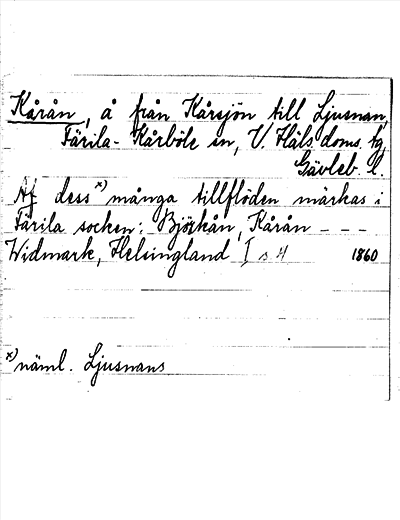 Kårån, å från Kårsjön till Ljusnan,
Färila-Kårböle sn, V. Häls. doms. tg
Gävleb. l.
Af dess x) många tillflöden märkas i
Färila socken: Björkån, Kårån - - -
Widmark, Helsingland I s 4 1860
x) näml. Ljusnans